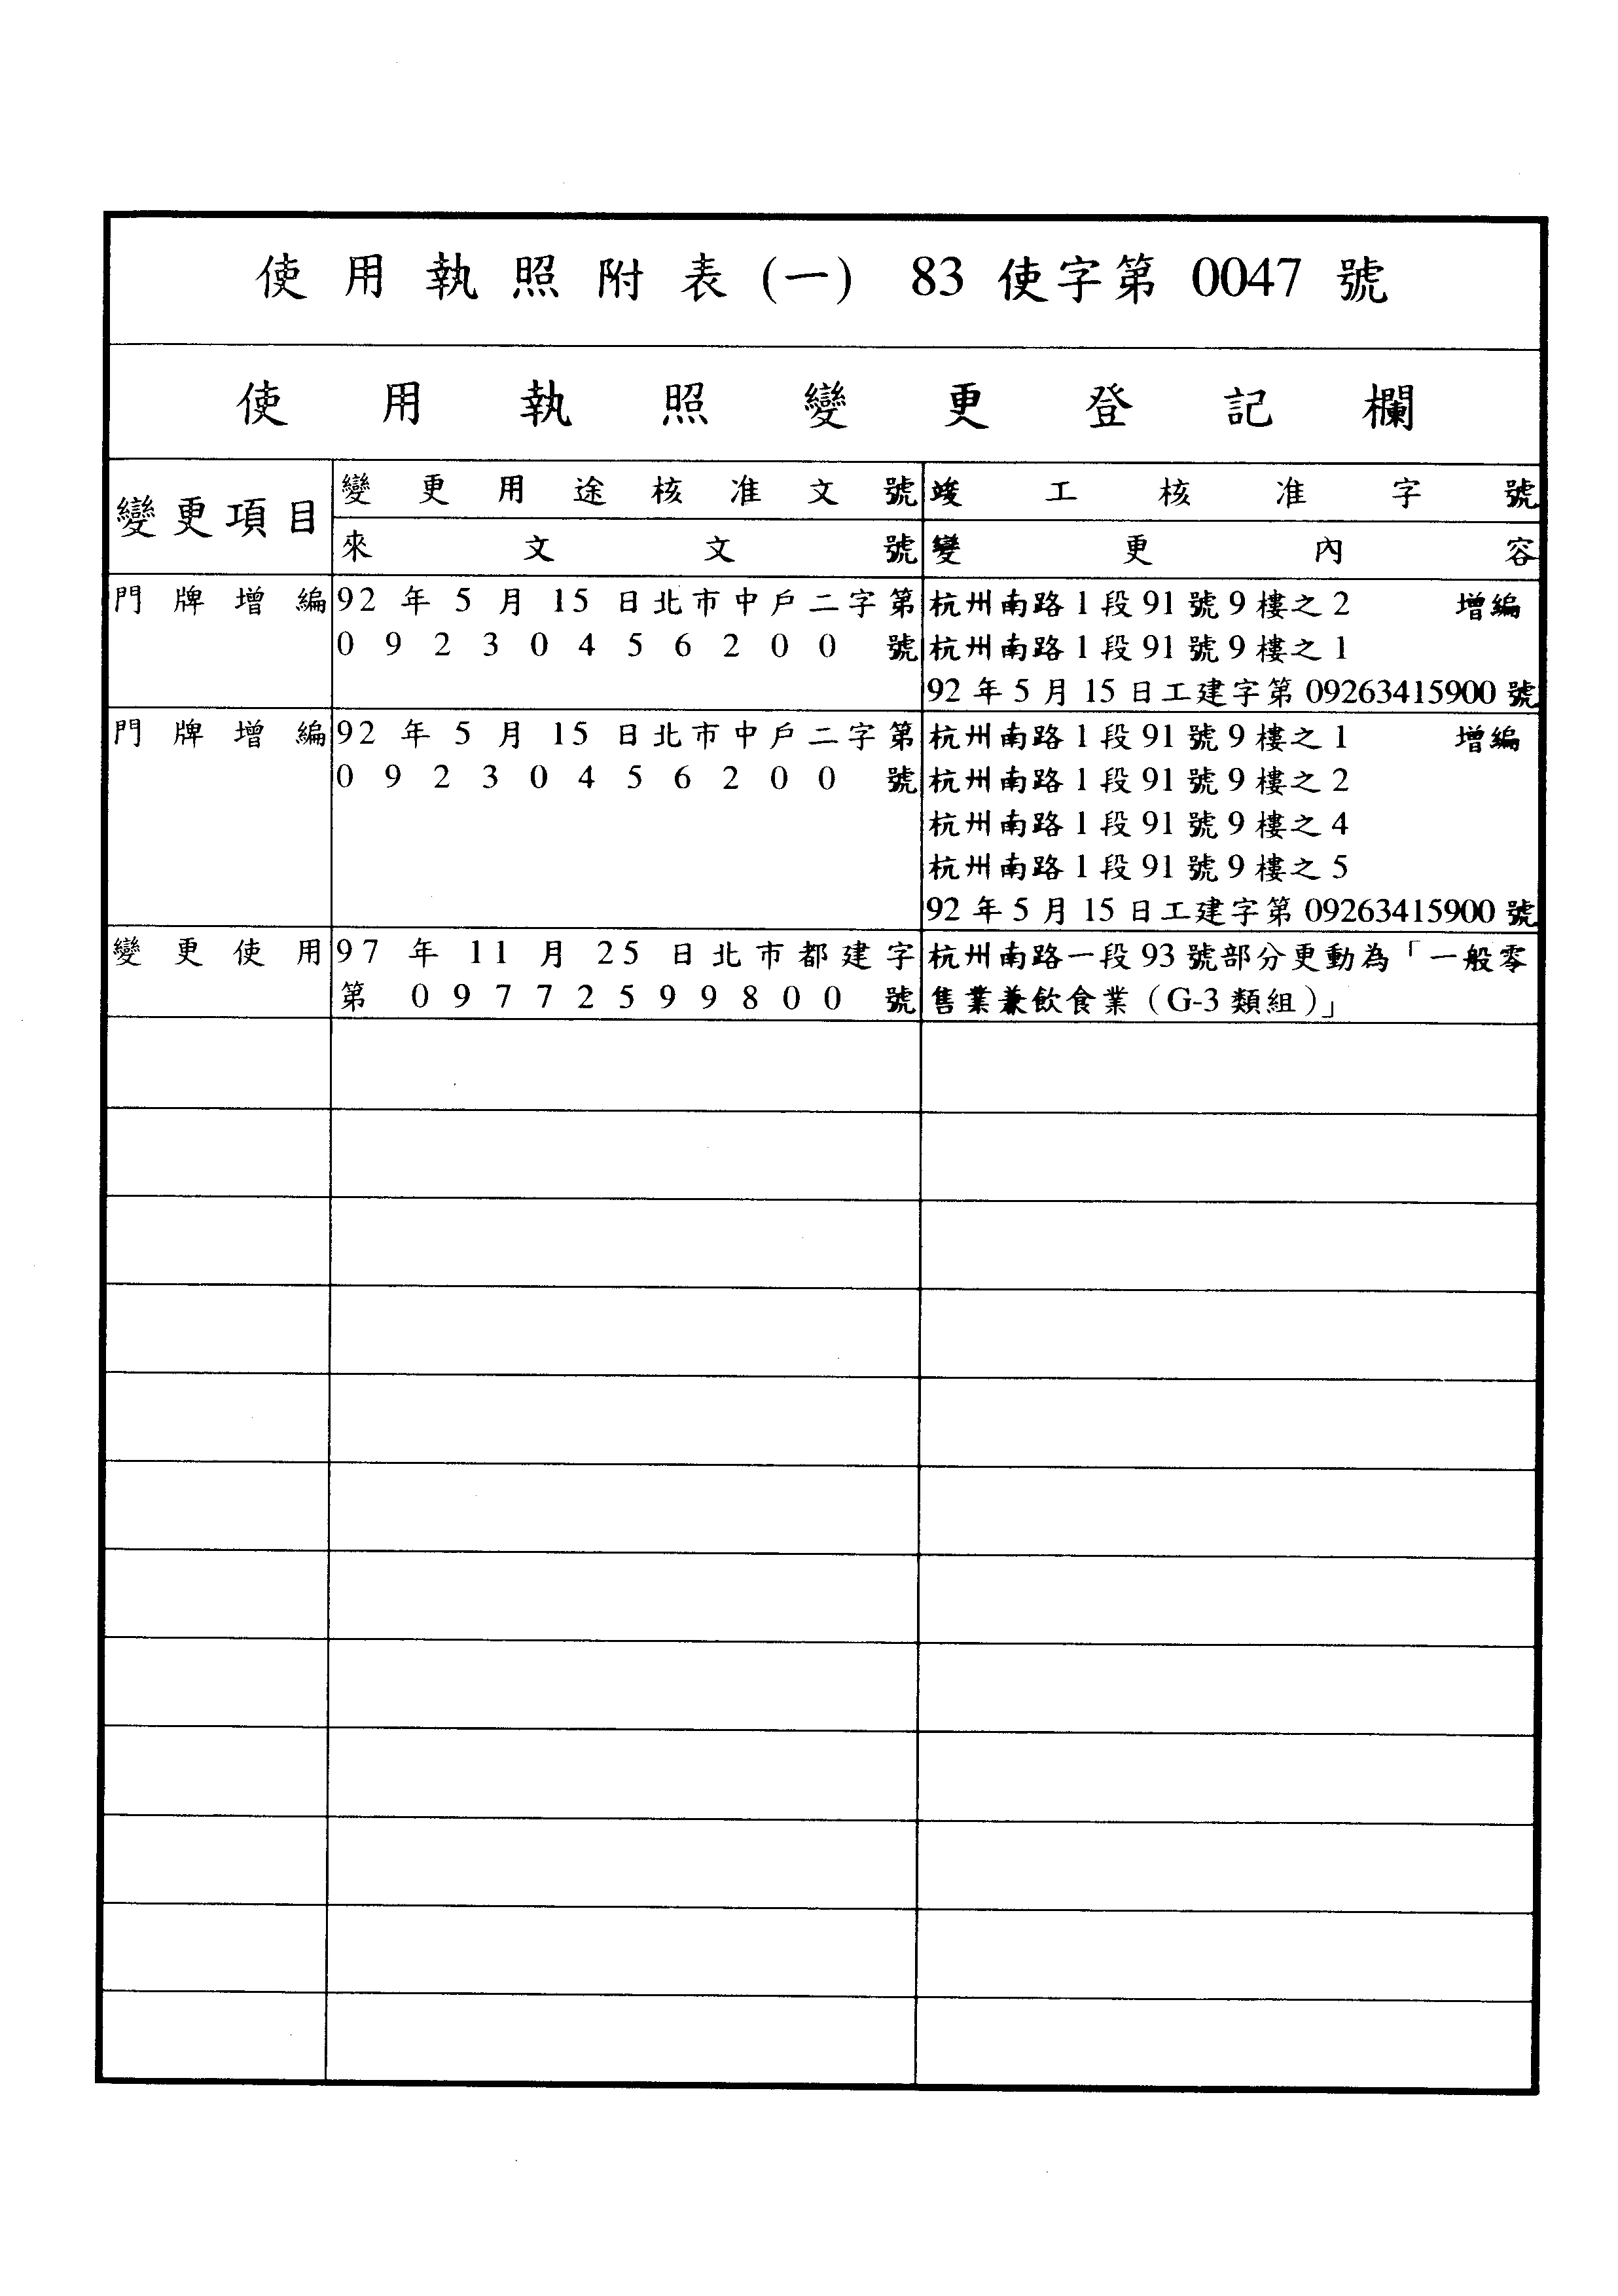 使用執照附表(一) 83使字第0047號
使用執照變更登記欄
變更項目
變更用途核准文號
竣工核准字號
來文文號
變更內容
門牌增編
92年5月15日北市中戶二字第
09230456200號
杭州南路1段91號9樓之2 增編
杭州南路1段91號9樓之1
92年5月15日工建字第09263415900號
門牌增編
92年5月15日北市中戶二字第
09230456200號
杭州南路1段91號9樓之1 增編
杭州南路1段91號9樓之2
杭州南路1段91號9樓之4
杭州南路1段91號9樓之5
92年5月15日工建字第09263415900號
變更使用
97年11月25日北市都建字
第09772599800號
杭州南路一段93號部分更動為「一般零
售業兼飲食業（G-3類組）」